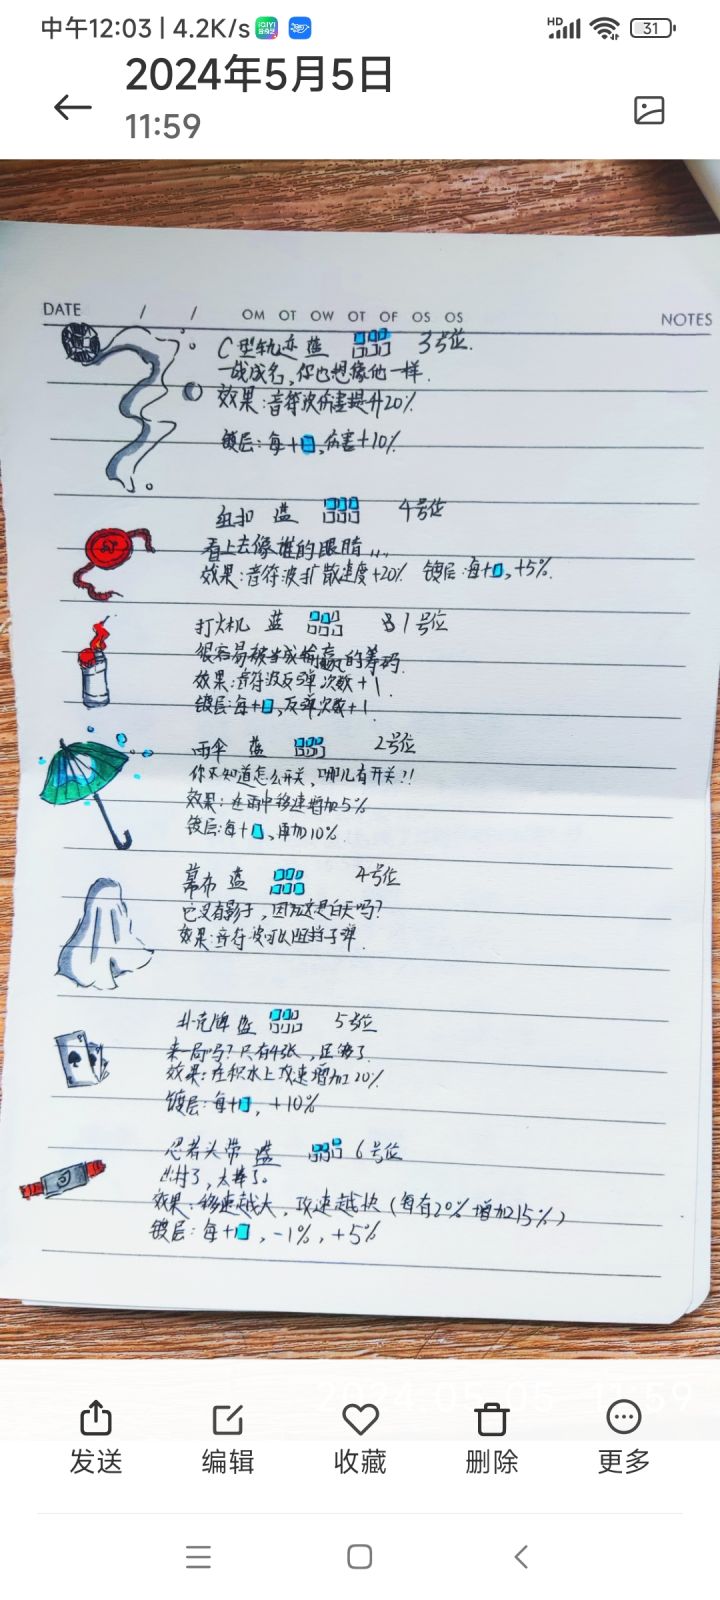 中午12:03 | 4.2K/s
HD
31
2024年5月5日
11:59
DATE / / OM OT OW OT OF OS OS NOTES
C型轨迹 蓝 3号位.
一战成名,你也想像他一样.
效果:音符波伤害提升20%
镀层:每+,伤害+10%
纽扣 蓝 4号位
看上去像谁的眼睛...
效果:音符波扩散速度+20% 镀层:每+,+5%.
打火机 蓝 1号位
很容易被当成输赢的筹码.
效果:音符波反弹次数+1.
镀层:每+,反弹次数+1.
雨伞 蓝 2号位
你不知道怎么开关,哪儿有开关?!
效果:在雨中移速增加5%
镀层:每+,再加10%.
幕布 蓝 4号位
它没有影子,因为这是白天吗?
效果:音符波可以阻挡子弹.
扑克牌 蓝 5号位
来一局吗?只有4张,足够了.
效果:在积水上攻速增加20%
镀层:每+,+10%
忍者头带 蓝 6号位
出村了,太棒了。
效果:移速越大,攻速越快(每有20%增加15%)
镀层:每+,-1%,+5%
发送 编辑 收藏 删除 更多